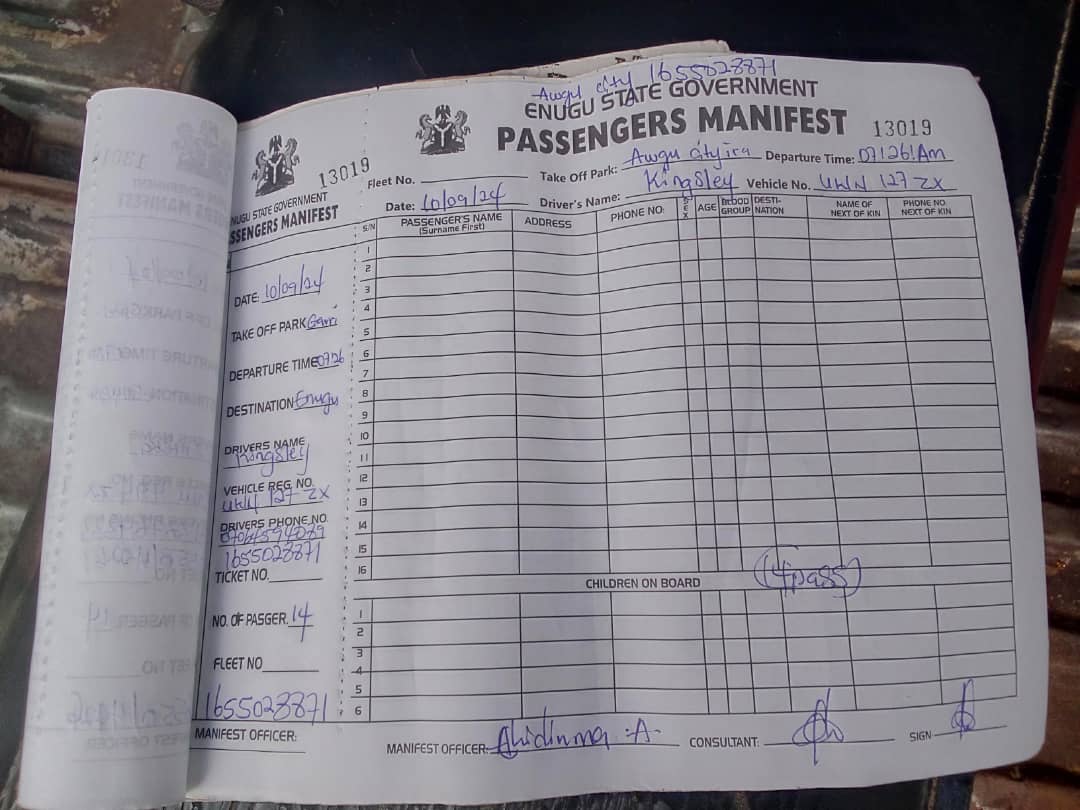 13019
ENUGU STATE GOVERNMENT
PASSENGERS MANIFEST
DATE: 10/09/24
TAKE OFF PARK
DEPARTURE TIME 07:26
DESTINATION Enugu
DRIVERS NAME
Kingsley
VEHICLE REG. NO.
UWN 127 ZX
DRIVERS PHONE NO.
1655028871
TICKET NO.
NO. OF PASGER. 14
FLEET NO
1655028871
MANIFEST OFFICER:
Awgu city 1655028871
ENUGU STATE GOVERNMENT
PASSENGERS MANIFEST 13019
Fleet No. Take Off Park: Awgu city Departure Time: 07:26 Am
Date: 10/09/24 Driver's Name: Kingsley Vehicle No. UWN 127 ZX
S/N PASSENGER'S NAME (Surname First) ADDRESS PHONE NO: SEX AGE BLOOD GROUP DESTI-NATION NAME OF NEXT OF KIN PHONE NO. NEXT OF KIN
1
2
3
4
5
6
7
8
9
10
11
12
13
14
15
16
CHILDREN ON BOARD (14 pass)
1
2
3
4
5
6
MANIFEST OFFICER: CONSULTANT: SIGN